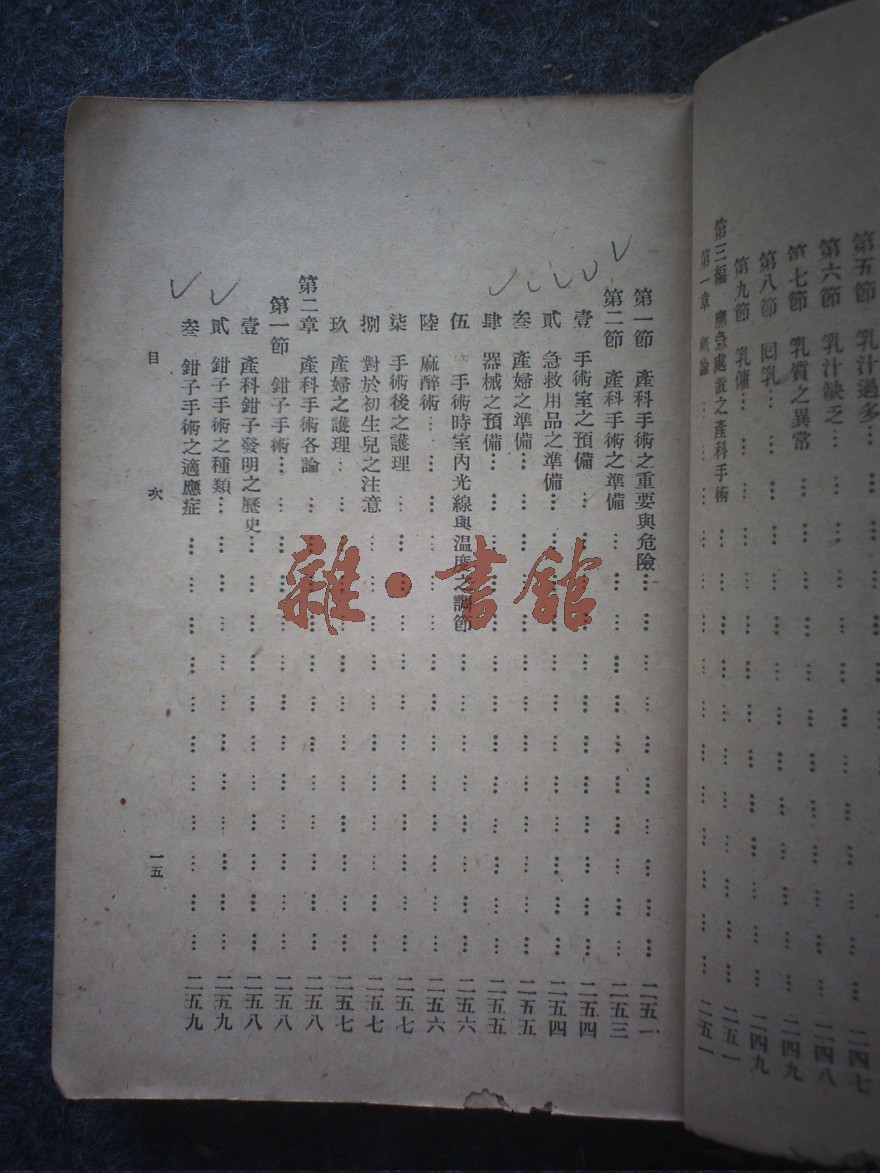 第五節 乳汁過多 二四七
第六節 乳汁缺乏 二四八
第七節 乳質之異常 二四九
第八節 回乳 二四九
第九節 乳傭 二五一
第三編 應急處置之產科手術
第一章 總論 二五一
第一節 產科手術之重要與危險 二五一
第二節 產科手術之準備 二五三
壹 手術室之預備 二五四
貳 急救用品之準備 二五四
叁 產婦之準備 二五五
肆 器械之預備 二五五
伍 手術時室內光線與温度之調節 二五六
陸 麻醉術 二五六
柒 手術後之護理 二五七
捌 對於初生兒之注意 二五七
玖 產婦之護理 二五七
第二章 產科手術各論 二五八
第一節 鉗子手術 二五八
壹 產科鉗子發明之歷史 二五八
貳 鉗子手術之種類 二五九
叁 鉗子手術之適應症 二五九
目 次 一五
雜·書館